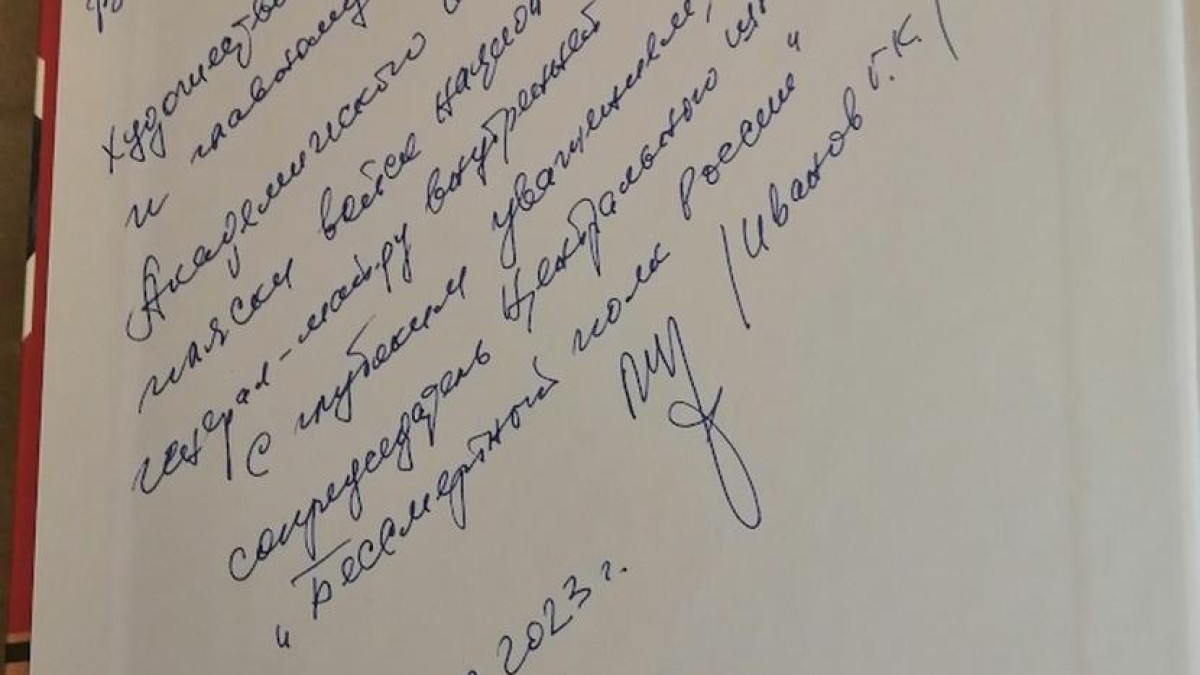 Художестве
и главному
Академического
пляски войск национ
генерал-майору внутренней
С глубоким уважением,
сопредседатель Центрального шт
"Бессмертный полк России"
/Иванов Г.К./
2023 г.